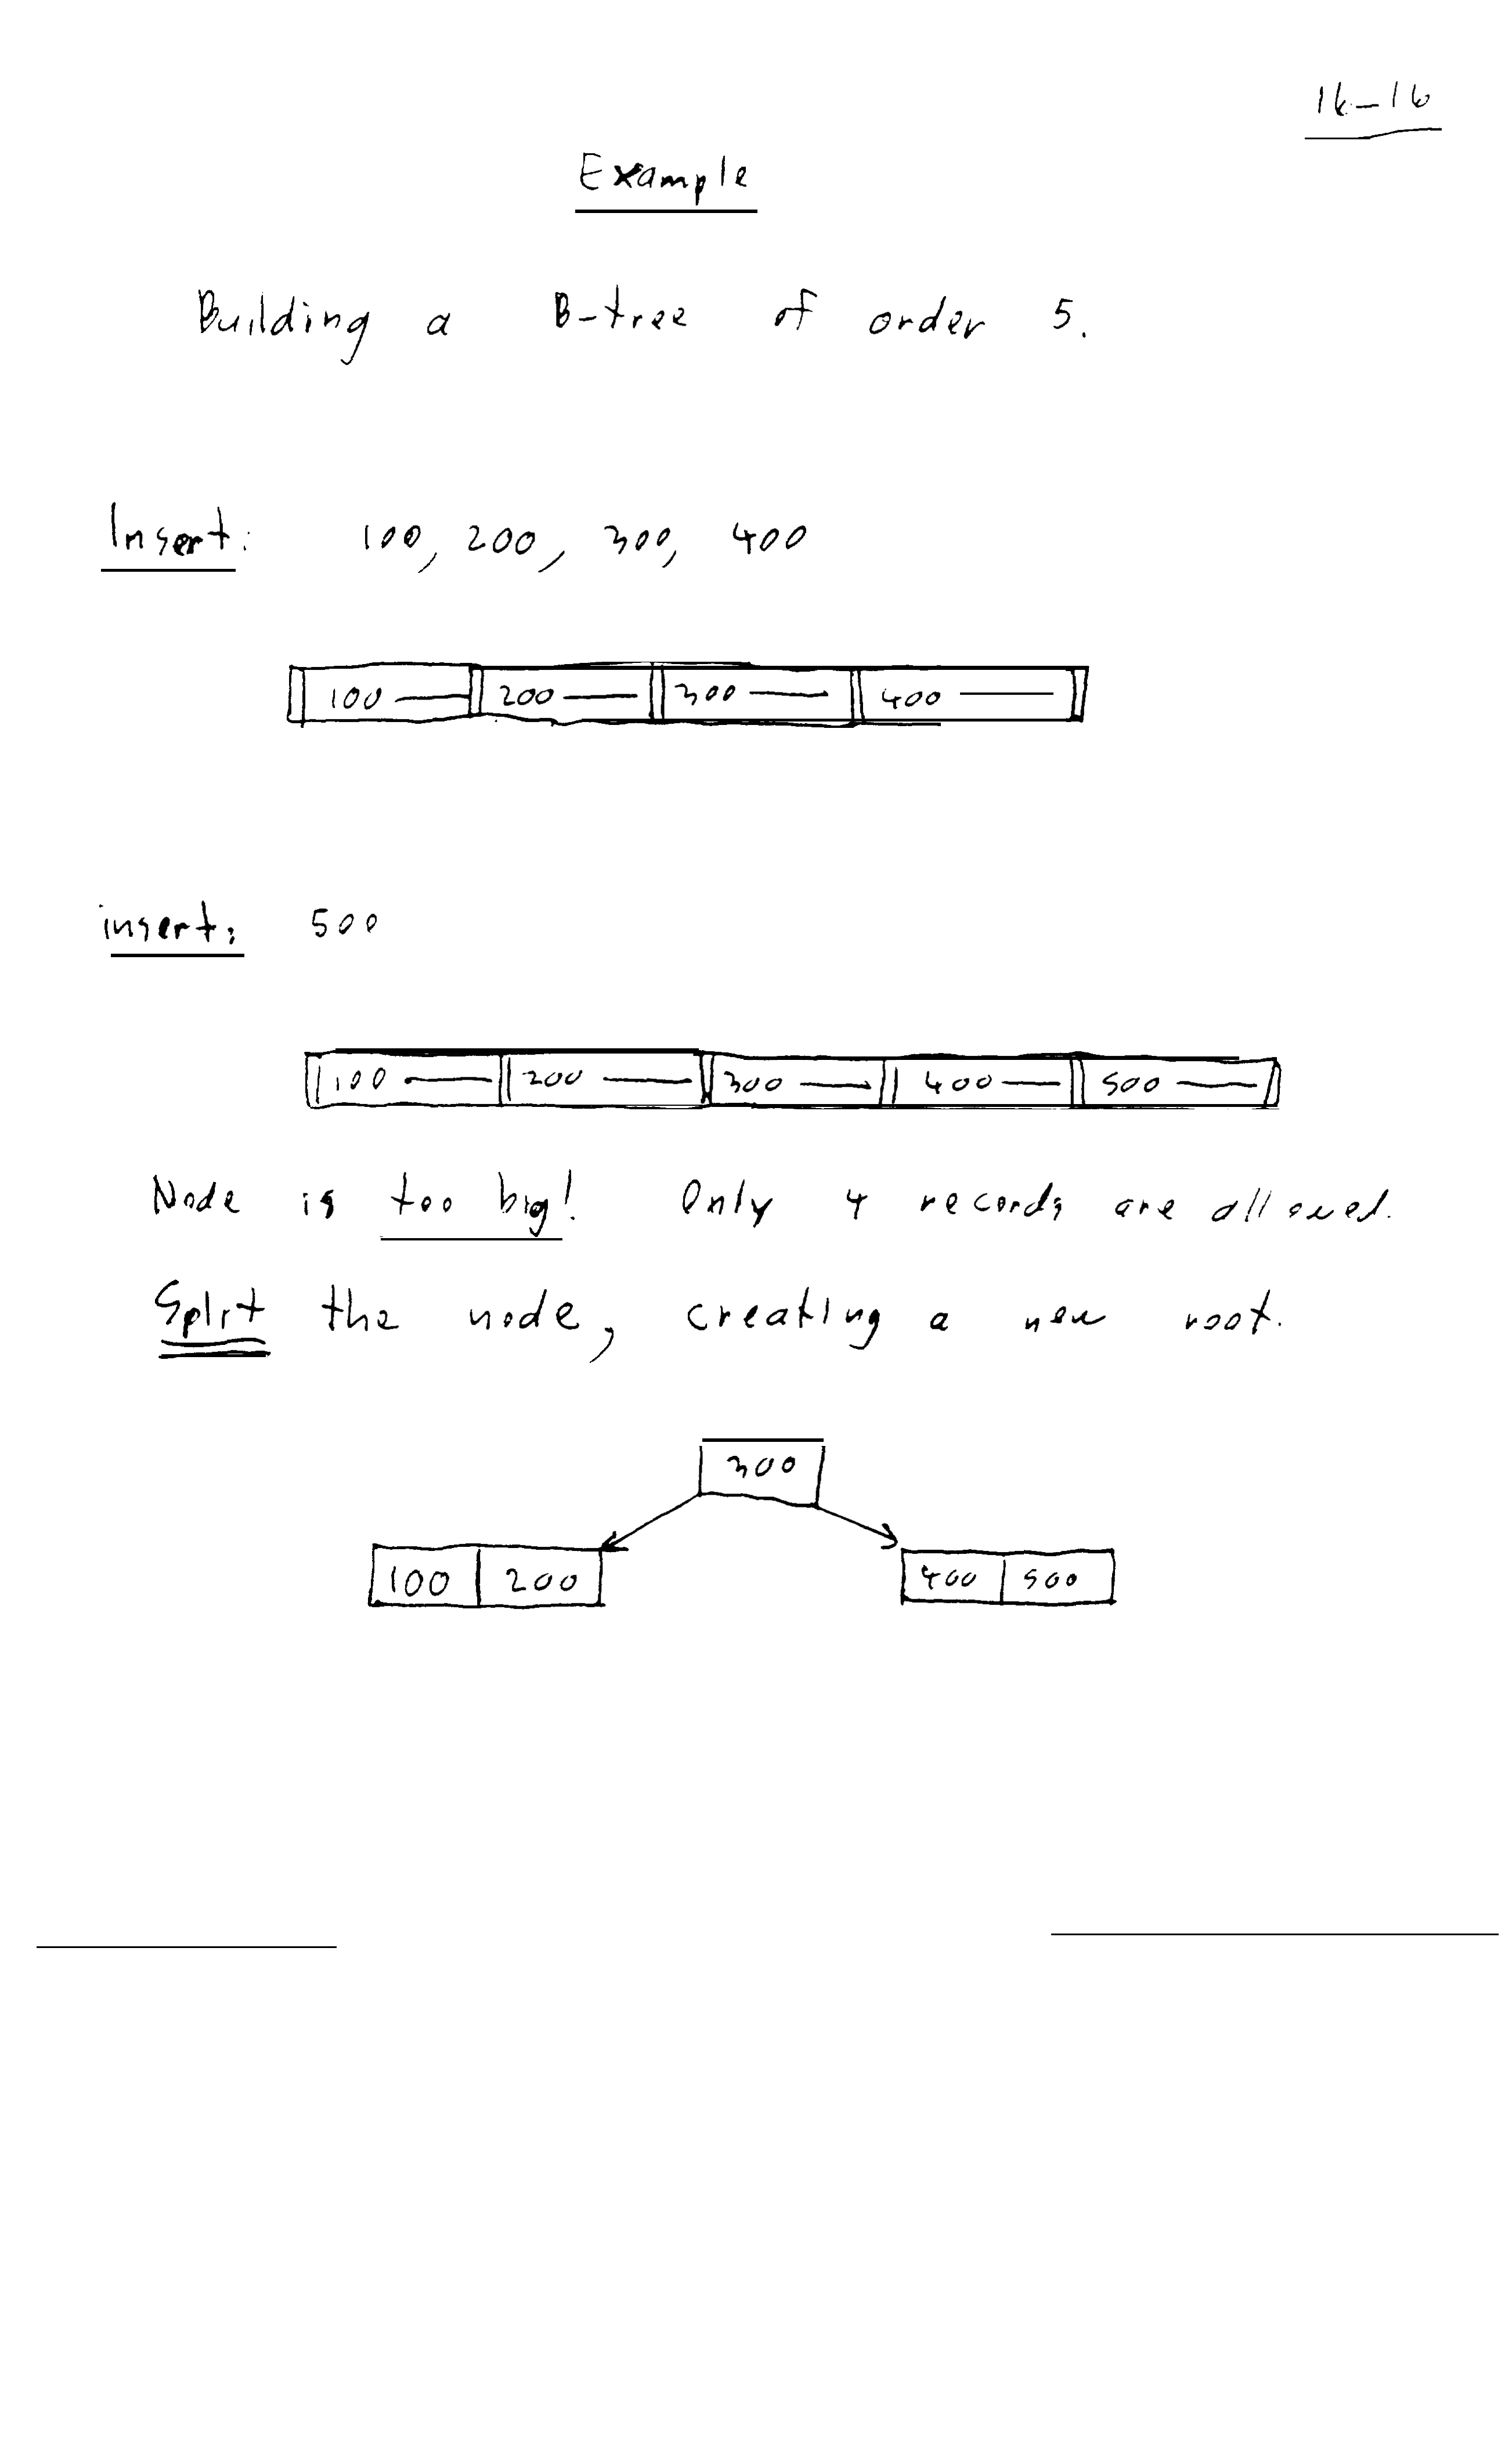 16-16
Example
Building a B-tree of order 5.
Insert: 100, 200, 300, 400
100 200 300 400
insert: 500
100 200 300 400 500
Node is too big! Only 4 records are allowed.
Split the node, creating a new root.
300
100 200 400 500